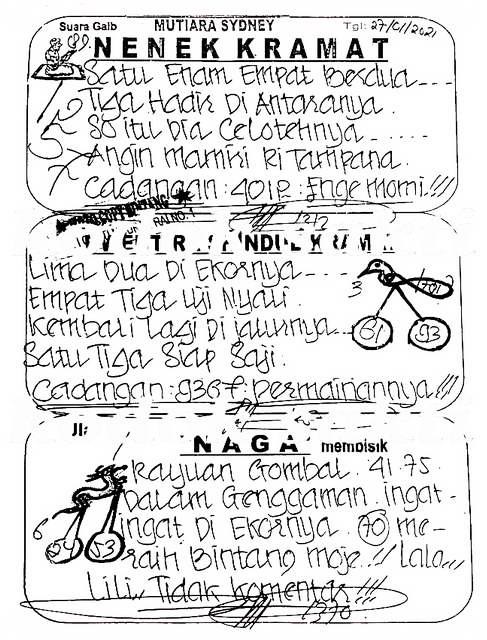 Suara Gaib MUTIARA SYDNEY Tgl: 27/01/2021
NENEK KRAMAT
Satu Enam Empat Berdua ---
Tiga Hadir Di Antaranya.
80 itu Dia Celotehnya ......
Angin Mamiri Ri Tampana.
Cadangan: 401P: Enge Momi.!!!
RAI.NO. 1
1212
Lima Dua Di Ekornya ----
Empat Tiga Uji Nyali.
Kembali Lagi Di jalurnya...
Satu Tiga Siap Saji.
Cadangan: 9367: Permainannya!!!
3
61 93
Jl:
NAGA membisik
Rayuan Gombal. 41.75.
Dalam Genggaman. ingat-
ingat Di Ekornya. 70 me-
raih Bintang
6
53
Lili,, Tidak Komentar!!!
1370